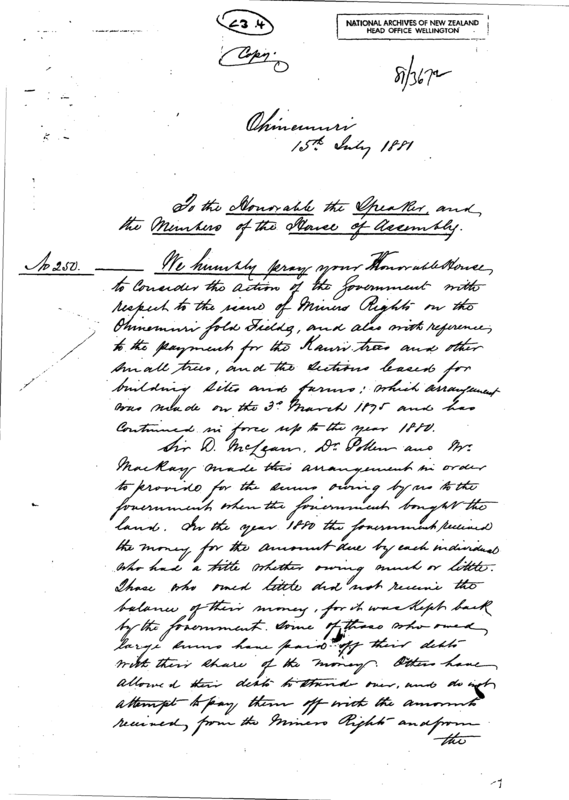 C3.4
NATIONAL ARCHIVES OF NEW ZEALAND
HEAD OFFICE WELLINGTON
Copy.
81/3672
Ohinemuri
15th July 1881
To the Honorable the Speaker, and
the Members of the House of Assembly.
No 250.
We humbly pray your Honorable House
to consider the action of the Government with
respect to the issue of Miners Rights on the
Ohinemuri Gold Fields, and also with reference
to the payment for the Kauri trees and other
small trees, and the sections leased for
building sites and farms; which arrangement
was made on the 3d March 1875 and has
continued in force up to the year 1880.
Sir D. McLean, Dr Pollen and Mr
MacKay made this arrangement in order
to provide for the sums owing by us to the
Government when the Government bought the
land. In the year 1880 the Government received
the money for the amount due by each individual
who had a title whether owing much or little.
Those who owed little did not receive the
balance of their money, for it was kept back
by the Government. Some of those who owed
large sums have paid off their debts
with their share of the money. Others have
allowed their debts to stand over, and do not
attempt to pay them off with the amounts
received, from the Miners Rights and from
the